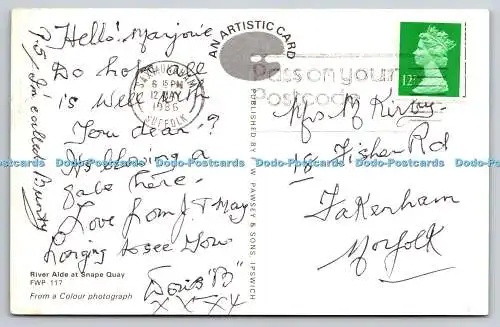 Hello! Marjorie
Do hope all
is Well With
You dear?
Its blowing a
gale here.
Love from J & May
Longing to see You
Doris "B"
x x x x
P.S. I'm called Bunty
River Alde at Snape Quay
FWP 117
From a Colour photograph
AN ARTISTIC CARD
PUBLISHED BY F. W. PAWSEY & SONS, IPSWICH
SAXMUNDHAM
6 15 PM
12 MAY
1986
SUFFOLK
Pass on your
Postcode
12P
Mrs M Kirby
18 Fisher Rd
Fakenham
Norfolk
Dodo-Postcards Dodo-Postcards Dodo-Postcards Dodo-Postcards